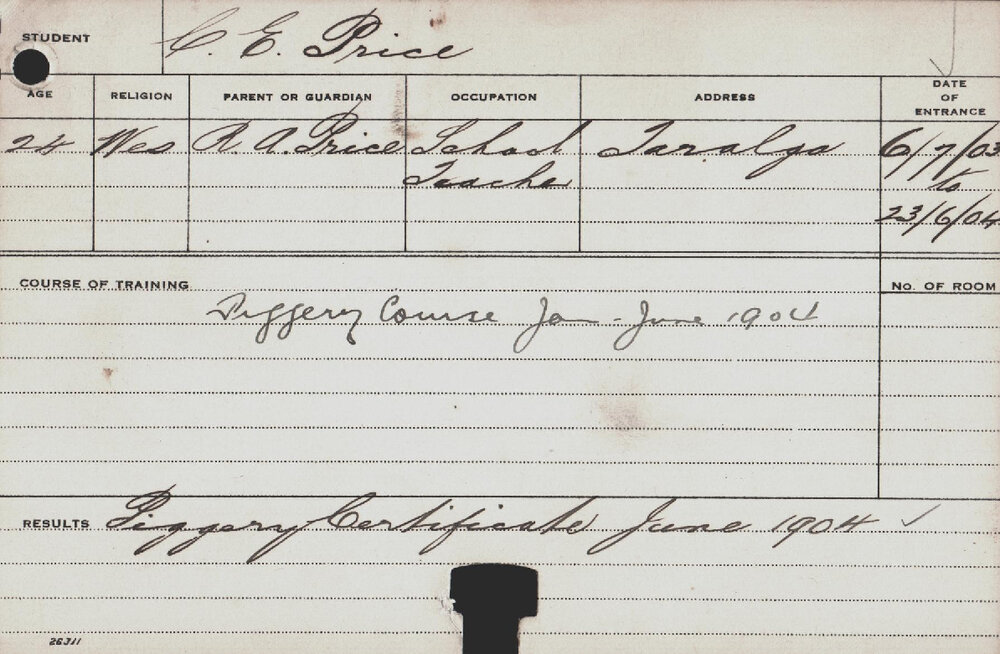 STUDENT C. E. Price
AGE RELIGION PARENT OR GUARDIAN OCCUPATION ADDRESS DATE OF ENTRANCE
24 Wes R. A. Price School Taralga 6/7/03
Teacher to
23/6/04
COURSE OF TRAINING No. OF ROOM
Piggery Course Jan - June 1904
RESULTS Piggery Certificate June 1904 ✓
26311